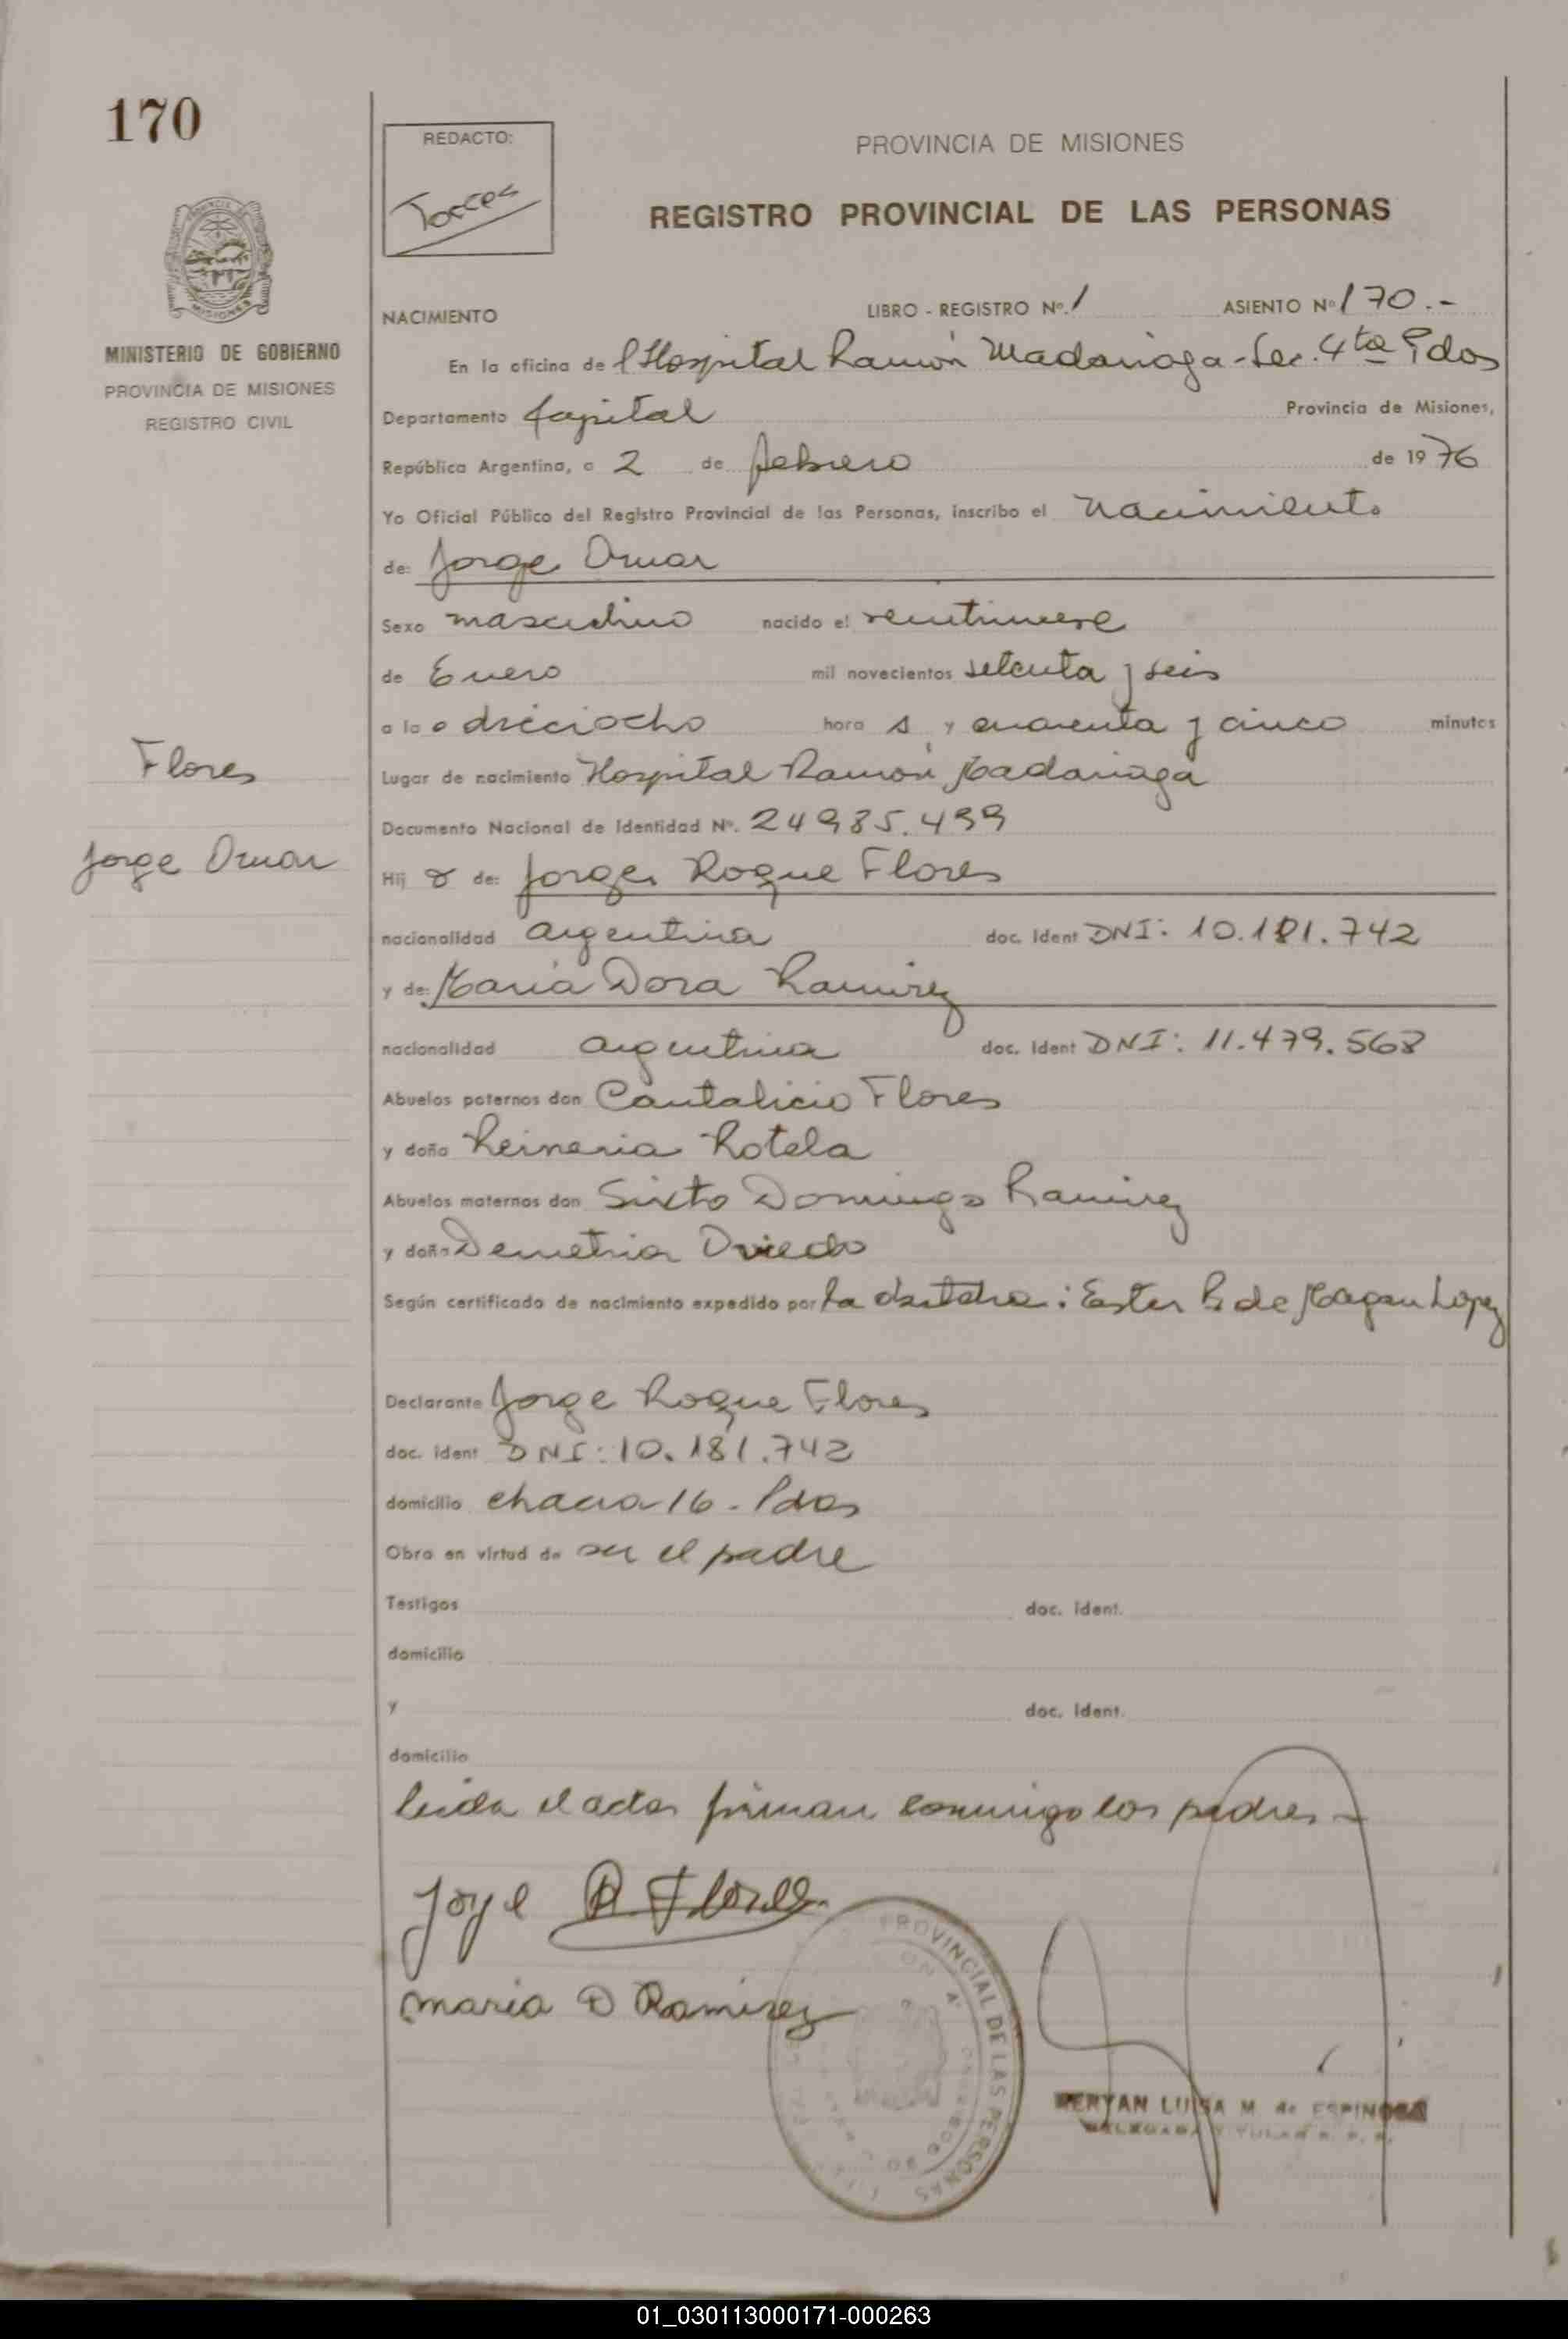 170
REDACTO:
Torres
PROVINCIA DE MISIONES
REGISTRO PROVINCIAL DE LAS PERSONAS
MINISTERIO DE GOBIERNO
PROVINCIA DE MISIONES
REGISTRO CIVIL
NACIMIENTO LIBRO - REGISTRO Nº. 1 ASIENTO Nº 170.-
En la oficina de l Hospital Ramón Madariaga - Sec. 4ta Pdas
Departamento Capital Provincia de Misiones,
República Argentina, a 2 de febrero de 1976
Yo Oficial Público del Registro Provincial de las Personas, inscribo el nacimiento
de: Jorge Omar
Sexo masculino nacido el veintinueve
de Enero mil novecientos setenta y seis
a la s dieciocho hora s y cuarenta y cinco minutos
Flores
Lugar de nacimiento Hospital Ramón Madariaga
Documento Nacional de Identidad Nº. 24985.499
Jorge Omar
Hij o de: Jorge Roque Flores
nacionalidad argentina doc. Ident DNI: 10.181.742
y de: María Dora Ramirez
nacionalidad argentina doc. Ident DNI: 11.479.568
Abuelos paternos don Cantalicio Flores
y doña Reineria Rotela
Abuelos maternos don Sixto Domingo Ramirez
y doña Demetria Oviedo
Según certificado de nacimiento expedido por la obstetra: Ester R de Lopez
Declarante Jorge Roque Flores
doc. ident DNI: 10.181.742
domicilio chacra 16 - Pdas
Obra en virtud de ser el padre
Testigos doc. Ident.
domicilio
y doc. Ident.
domicilio
leida el acta firman conmigo los padres -
Jorge R Flores
maria D Ramirez
PROVINCIAL DE LAS PERSONAS
LUISA M. de ESPINOSA
01_030113000171-000263